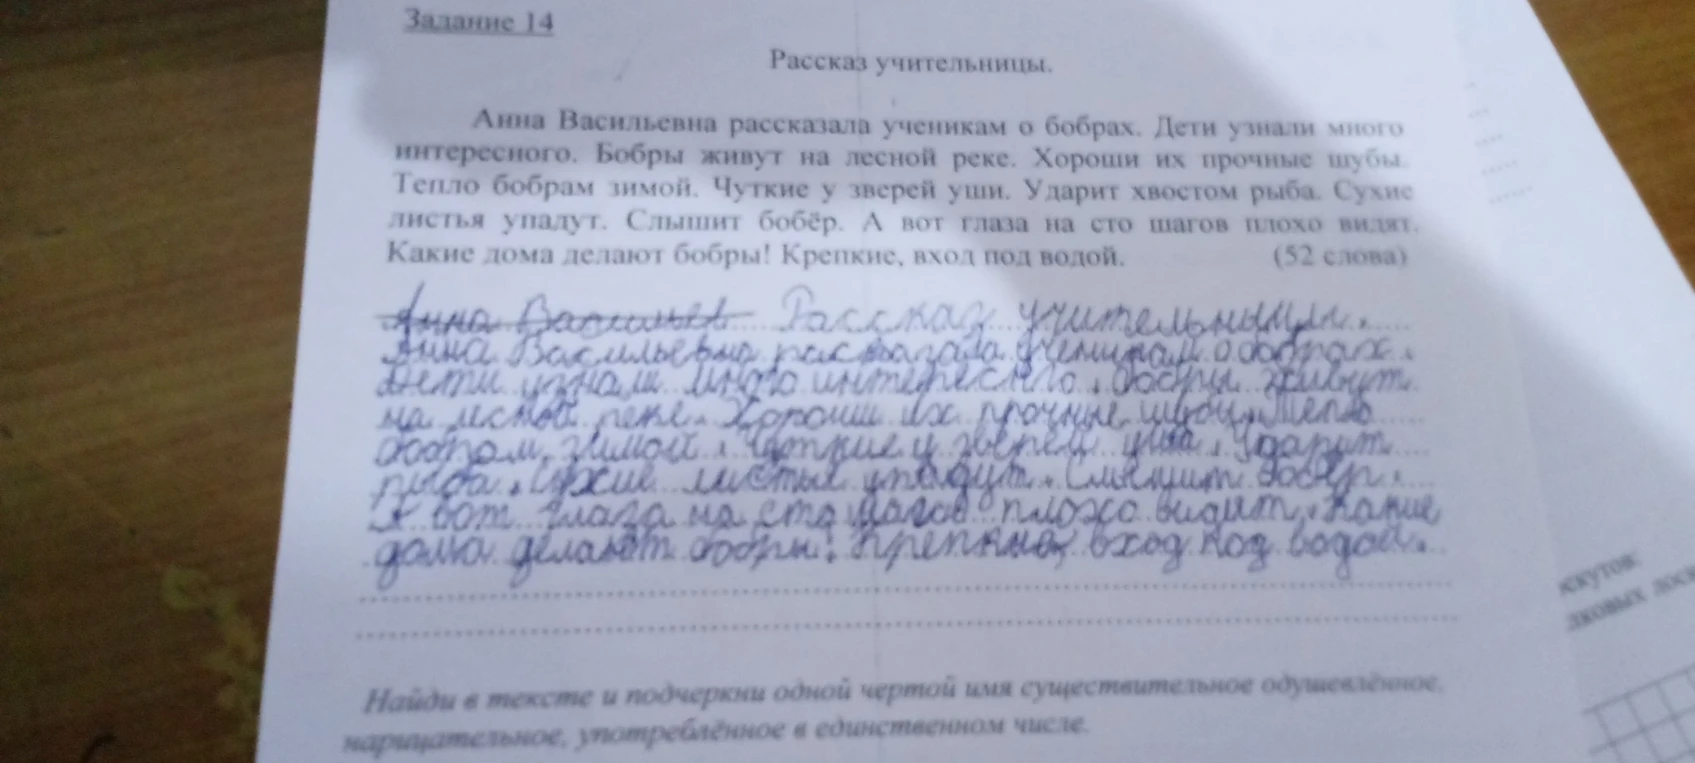 Задание 14
Рассказ учительницы.
Анна Васильевна рассказала ученикам о бобрах. Дети узнали много
интересного. Бобры живут на лесной реке. Хороши их прочные шубы.
Тепло бобрам зимой. Чуткие у зверей уши. Ударит хвостом рыба. Сухие
листья упадут. Слышит бобёр. А вот глаза на сто шагов плохо видят.
Какие дома делают бобры! Крепкие, вход под водой. (52 слова)
Анна Васильев Рассказ учительницы.
Анна Васильевна рассказала ученикам о бобрах.
Дети узнали много интересного. Бобры живут
на лесной реке. Хороши их прочные шубы. Тепло
бобрам зимой. Чуткие у зверей уши. Ударит
рыба. Сухие листья упадут. Слышит бобёр.
А вот глаза на сто шагов плохо видит. Какие
дома делают бобры! Крепкие, вход под водой.
Найди в тексте и подчеркни одной чертой имя существительное одушевлённое,
нарицательное, употреблённое в единственном числе.